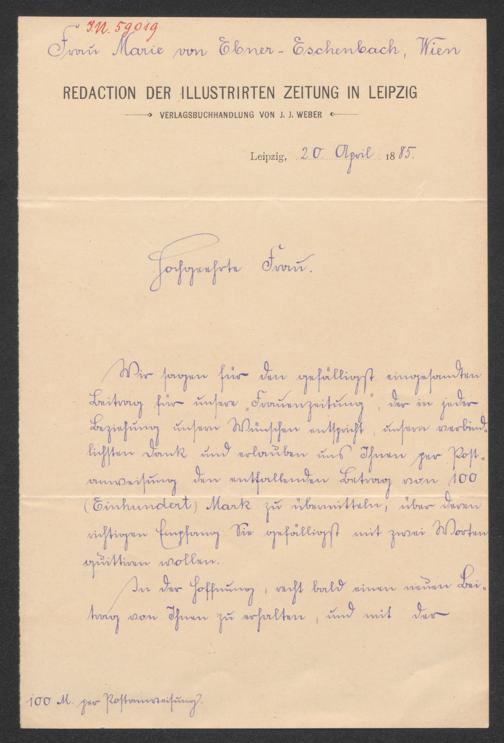 I.N. 59019
Frau Marie von Ebner-Eschenbach, Wien
REDACTION DER ILLUSTRIRTEN ZEITUNG IN LEIPZIG
VERLAGSBUCHHANDLUNG VON J. J. WEBER
Leipzig, 20. April 1885.
Hochgeehrte Frau.
Wir sagen für den gefälligst eingesandten
Beitrag für unsere „Frauenzeitung", der in jeder
Beziehung unsern Wünschen entspricht, unsern verbind-
lichsten Dank und erlauben uns Ihnen per Post-
anweisung den entfallenden Betrag von 100
(Einhundert) Mark zu übermitteln, über deren
richtigen Empfang Sie gefälligst mit zwei Worten
quittiren wollen.
In der Hoffnung, recht bald einen neuen Bei-
trag von Ihnen zu erhalten, und mit der
100 M. per Postanweisung.